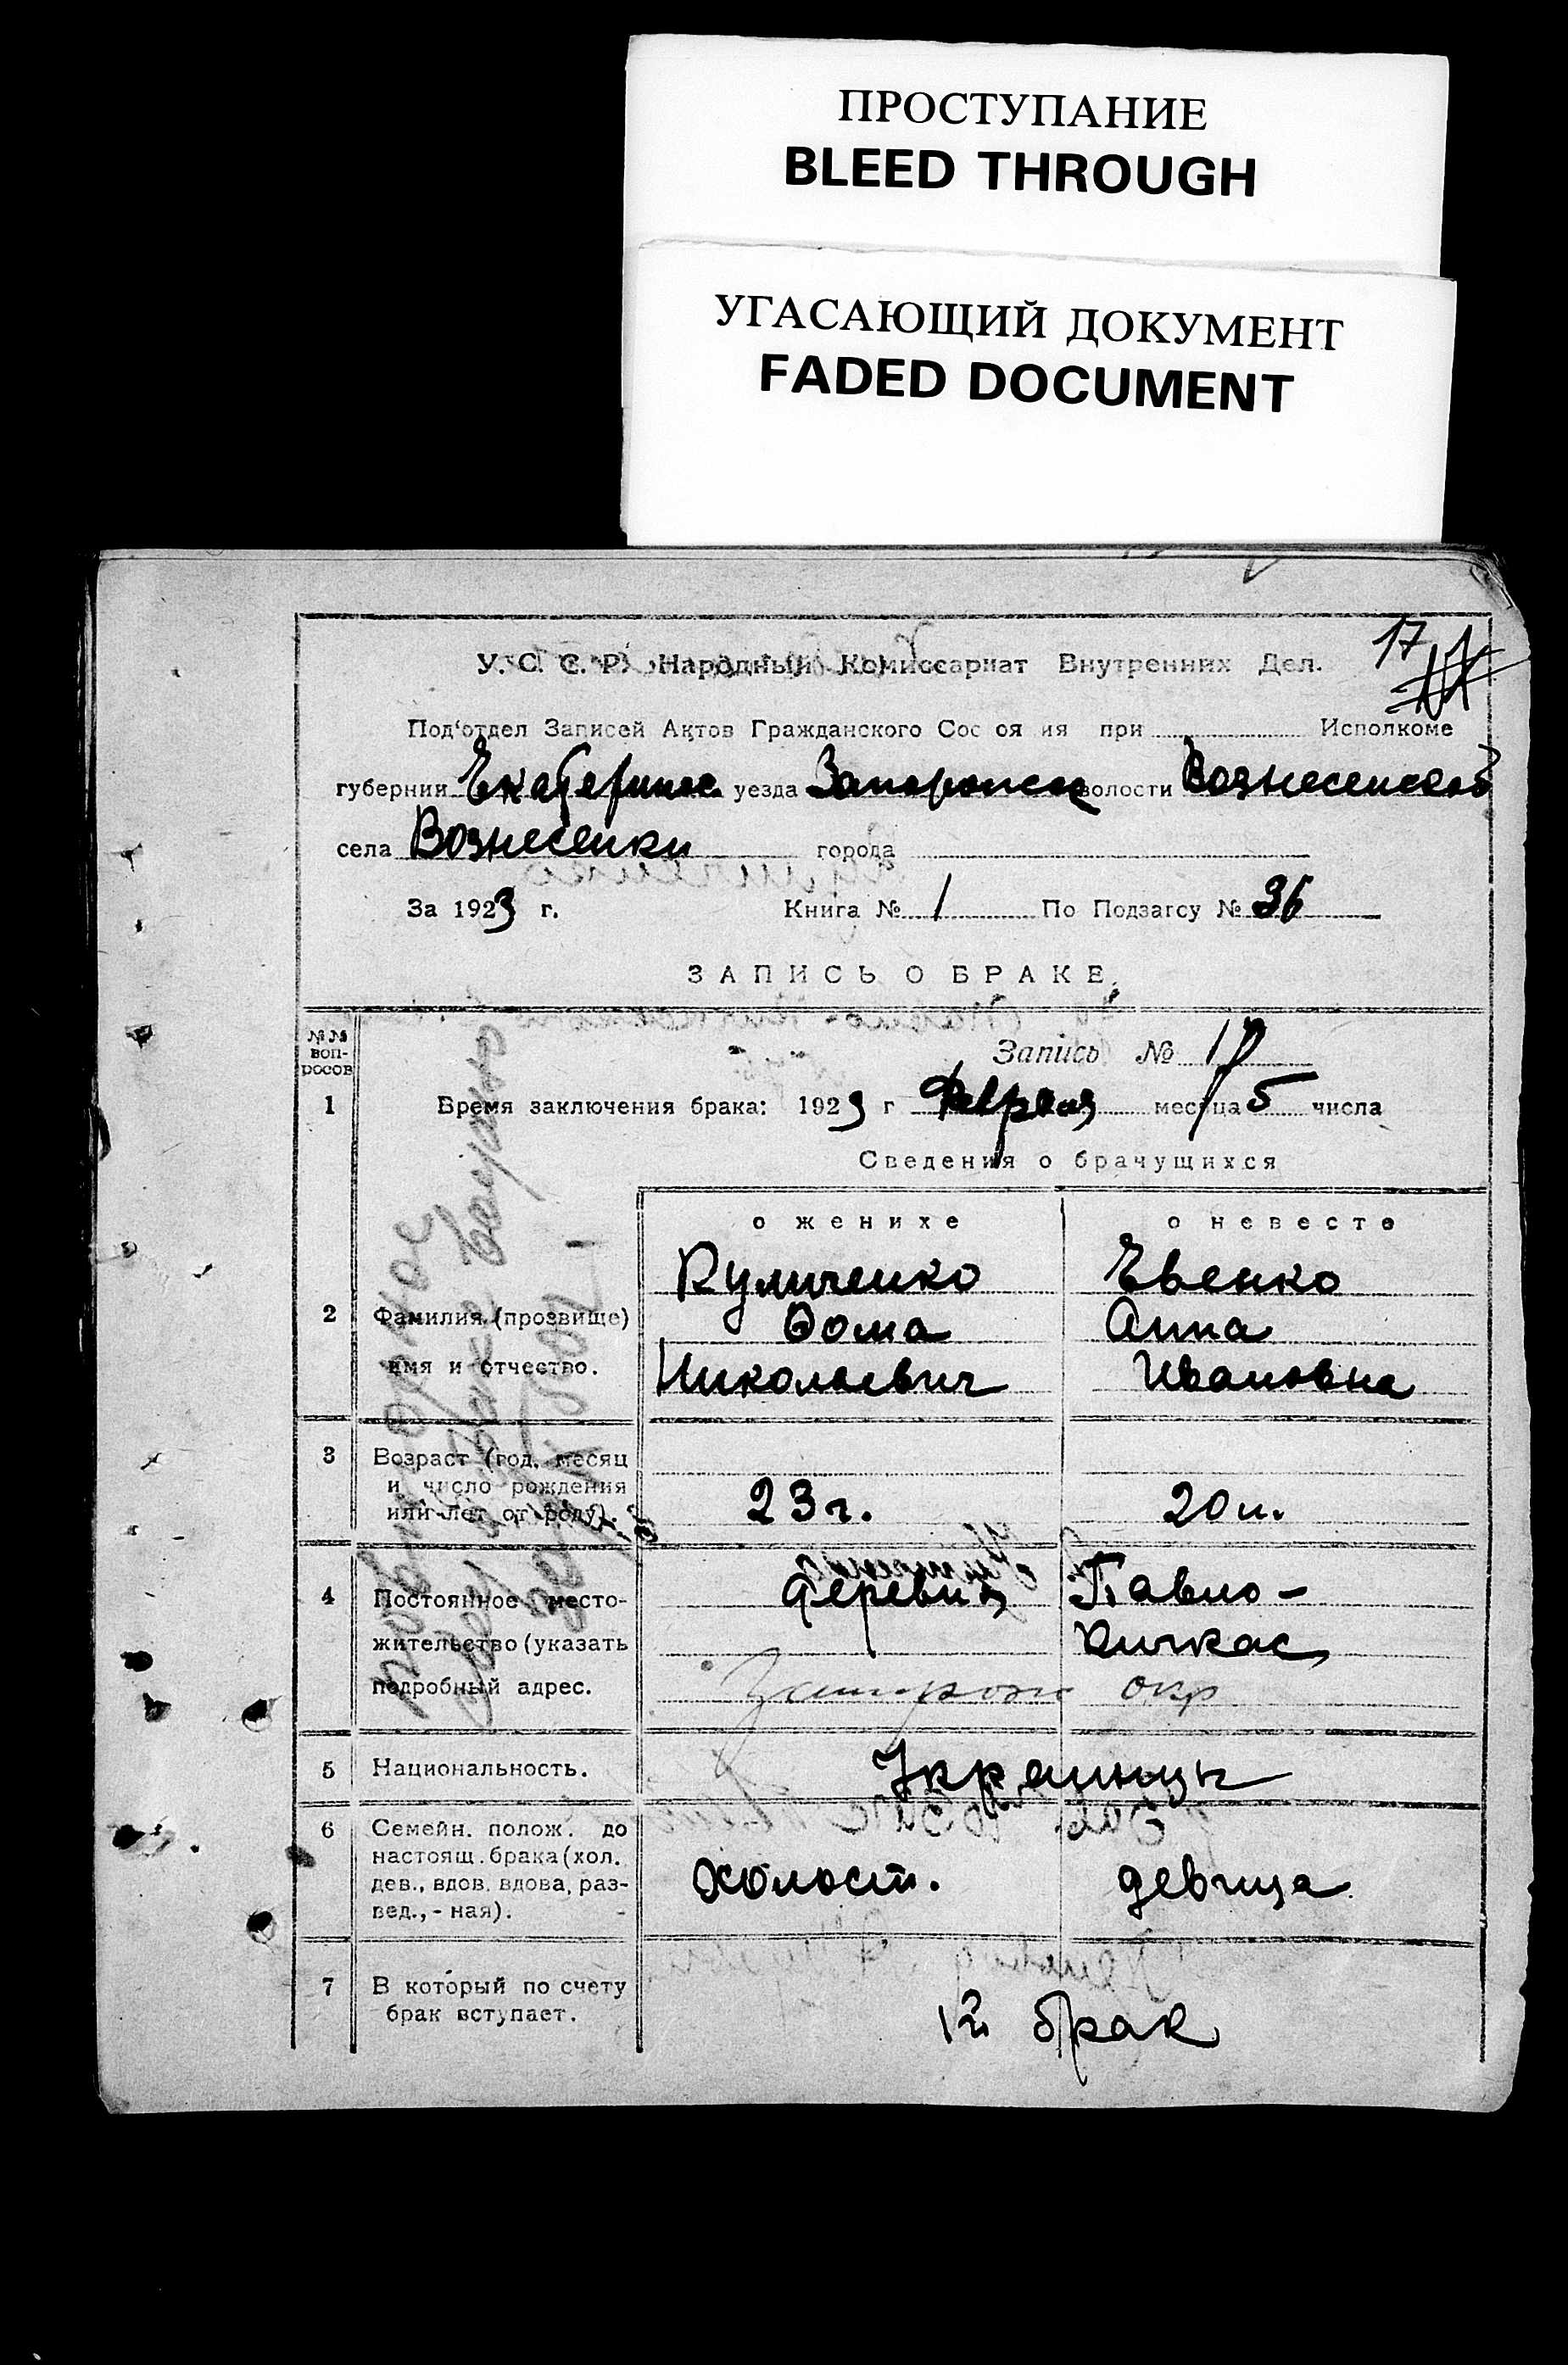 ПРОСТУПАНИЕ
BLEED THROUGH
УГАСАЮЩИЙ ДОКУМЕНТ
FADED DOCUMENT
17
У. С. С. Р. Народный Комиссариат Внутренних Дел.
Под'отдел Записей Актов Гражданского Сос оя ия при Исполкоме
губернии Екатеринос уезда Запорожск волости Вознесенской
села Вознесенки города
За 1923 г. Книга № 1 По Подзагсу № 36
ЗАПИСЬ О БРАКЕ.
№№ воп-росов
Запись № 17
1 Время заключения брака: 1923 г Февраля месяца 5 числа
Сведения о брачущихся
о женихе о невесте
Куличенко Евенко
2 Фамилия (прозвище) Фома Анна
имя и отчество. Николаевич Ивановна
3 Возраст (год, месяц
и число рождения
или лет от роду). 23 г. 20 л.
4 Постоянное место- Деревня Павло-
жительство (указать Кичкас
подробный адрес. Запорож окр
5 Национальность. Украинцы
6 Семейн. полож. до
настоящ. брака (хол.
дев., вдов, вдова, раз- Холост. девица
вед., - ная).
7 В который по счету
брак вступает. 1й брак